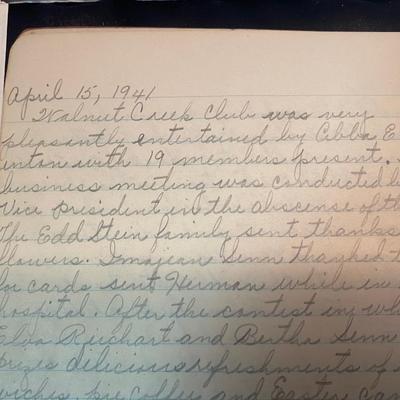 April 15, 1941
Walnut Creek Club was very
pleasantly entertained by Abba E
inton with 19 members present.
business meeting was conducted b
Vice president in the abscense of th
The Edd Stein family sent thanks
flowers. Imajean Senn thanked t
for cards sent Herman while in
hospital. After the contest in wh
Elva Reichart and Bertha Senn
prizes delicious refreshments of
wiches, pie coffee and Easter can